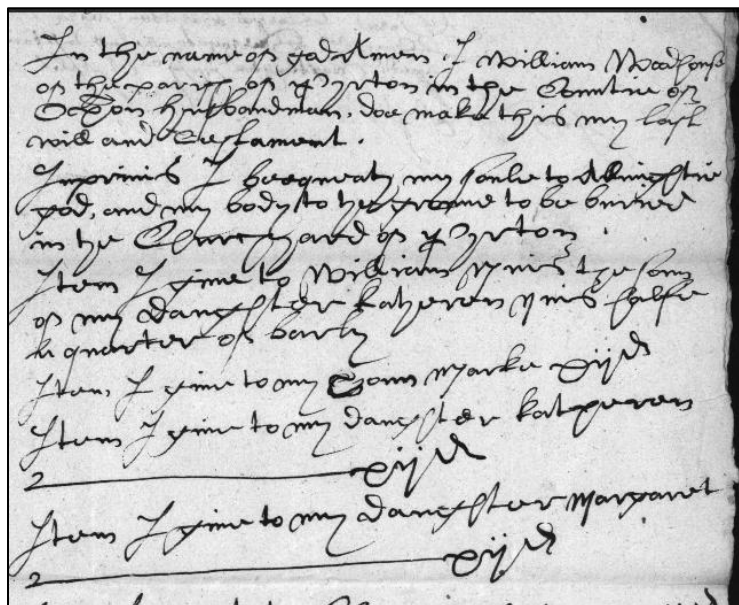 In the name of god Amen. I William Woodhouse
of the parish of Pyrton in the Countie of
Oxon husbandman, doe make this my last
will and Testament.
Inprimis I bequeath my soule to Allmightie
god, and my body to the ground to be buried
in the Churchyard of Pyrton.
Item I give to William the sonn
of my daughter Katheren halfe
a quarter of barly
Item I give to my Sonn Marke xijd
Item I give to my daughter Katheren
xijd
Item I give to my daughter Margaret
xijd